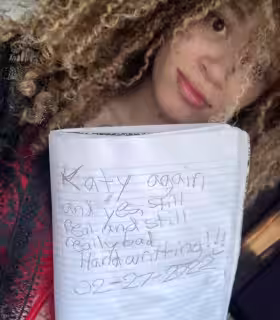 Katy again,
and yes, still
real and still
really bad
Handwritting!!!
02-27-2022